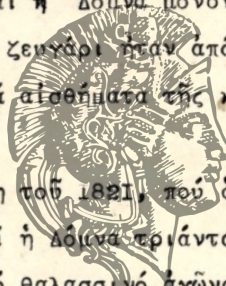 ἡ Δόμνα μόνον
ζευγάρι ἦταν ἀπό
αἰσθήματα τῆς
τοῦ 1821, πού
ἡ Δόμνα τριάντα
θαλασσινό ἀγῶνα